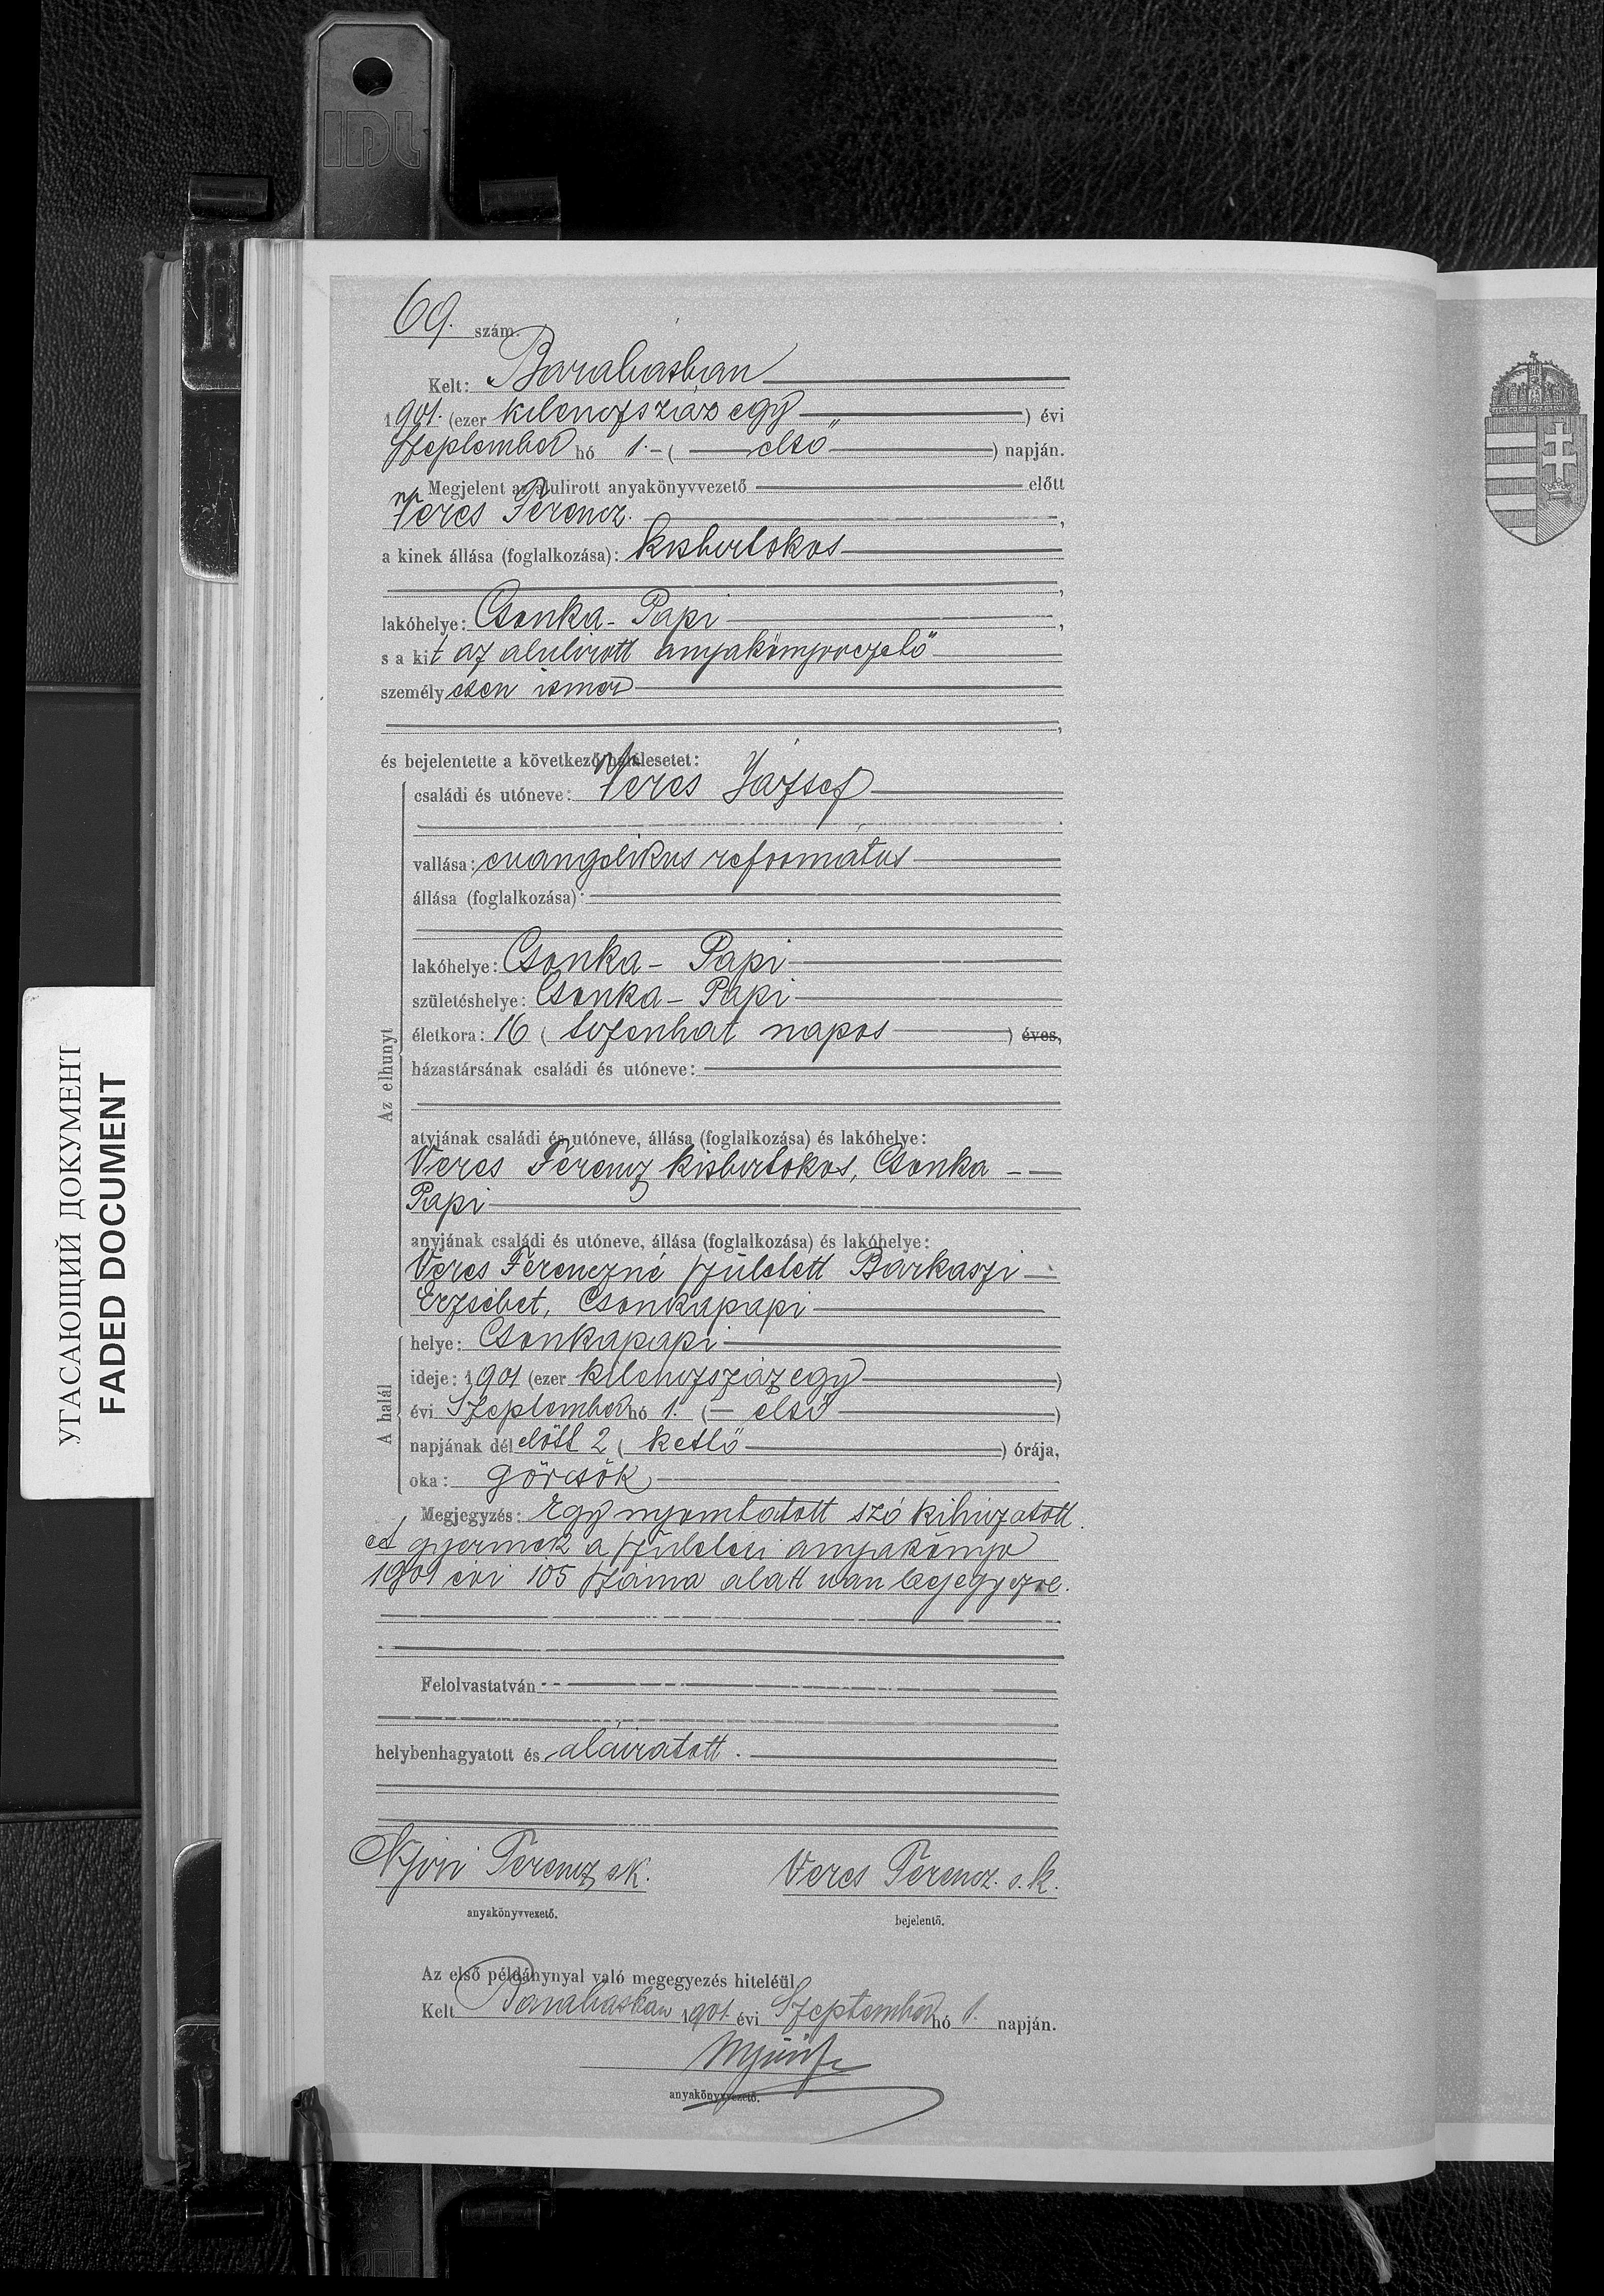 IDL
69. szám.
Kelt: Barabásban
1901. (ezer kilenczszáz egy) évi
Szeptember hó 1. - ( első ) napján.
Megjelent az alulirott anyakönyvvezető előtt
Veres Ferencz.,
a kinek állása (foglalkozása): kisbirtokos
,
lakóhelye: Csonka - Papi,
s a kit az alulirott anyakönyvvezető
személyesen ismer
,
és bejelentette a következő halálesetet:
Az elhunyt
családi és utóneve: Veres József
vallása: evangelikus református
állása (foglalkozása):
lakóhelye: Csonka - Papi
születéshelye: Csonka - Papi
életkora: 16 ( tizenhat napos ) éves,
házastársának családi és utóneve:
atyjának családi és utóneve, állása (foglalkozása) és lakóhelye:
Veres Ferencz kisbirtokos, Csonka -
Papi
anyjának családi és utóneve, állása (foglalkozása) és lakóhelye:
Veres Ferenczné született Barkaszi
Erzsébet, Csonkapapi
A halál
helye: Csonkapapi
ideje: 1901 (ezer kilenczszáz egy )
évi Szeptember hó 1. ( - első )
napjának délelőtt 2 ( kettő ) órája,
oka: görcsök
Megjegyzés: Egy nyomtatott szó kihúzatott.
a gyermek a születési anyakönyv
1901 évi 105 száma alatt van bejegyezve.
Felolvastatván
helybenhagyatott és aláiratott.
Nyiri Ferencz sk.
anyakönyvvezető.
Veres Ferencz. s. k.
bejelentő.
Az első példánynyal való megegyezés hiteléül
Kelt Barabásban 1901. évi Szeptember hó 1. napján.
anyakönyvvezető.
УГАСАЮЩИЙ ДОКУМЕНТ
FADED DOCUMENT